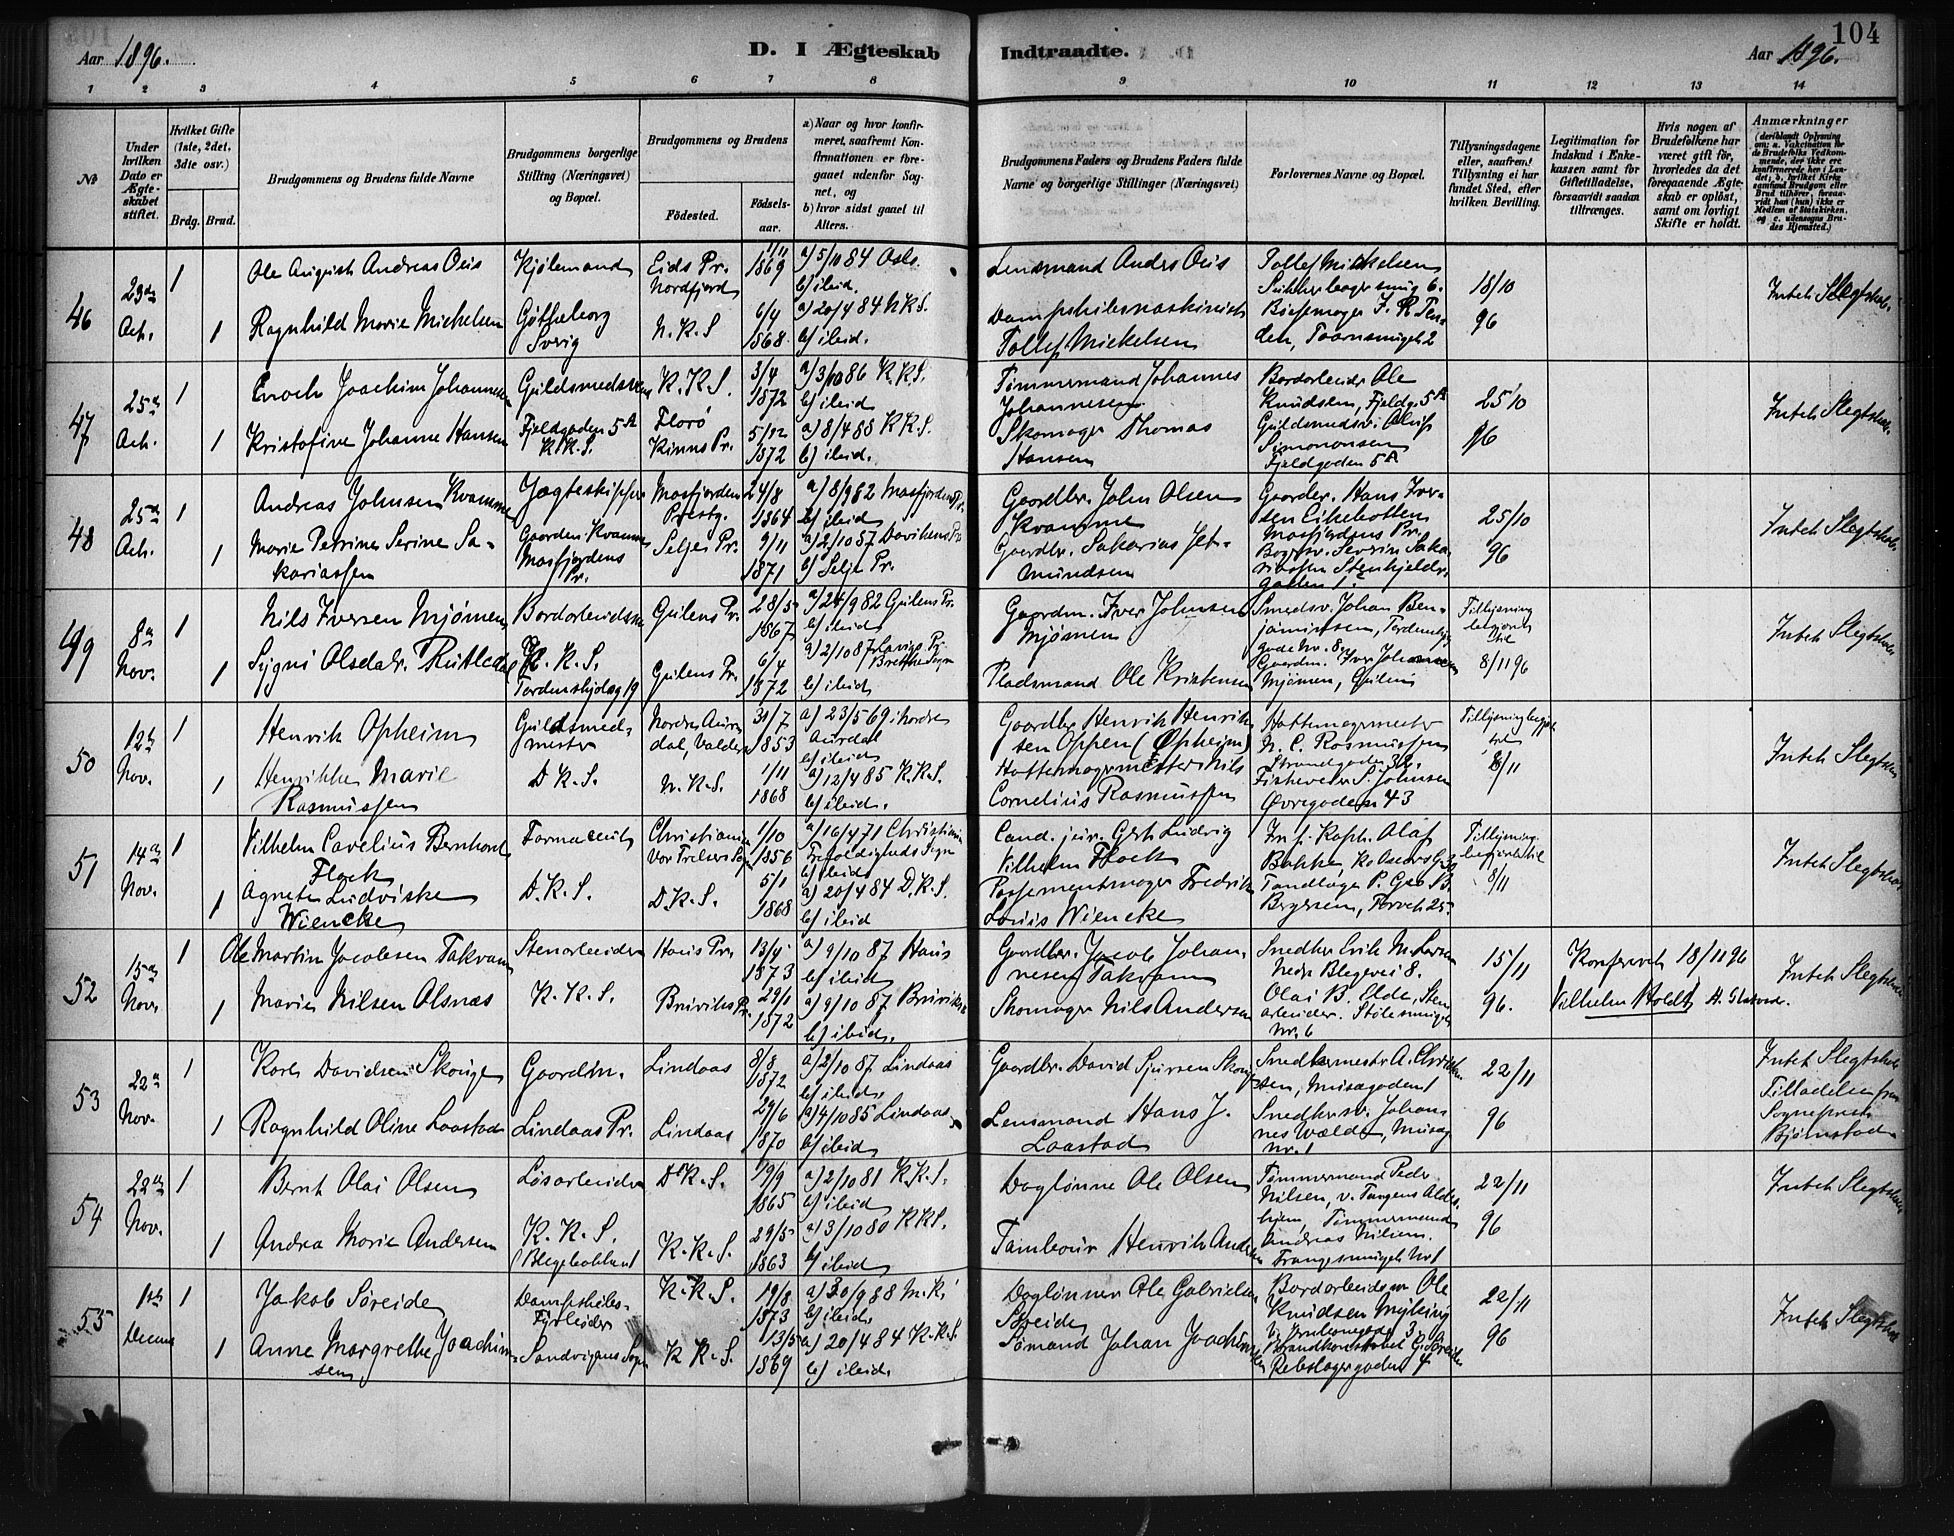 104
Aar 1896.
D. I Ægteskab
Indtraadte.
Aar 1896.
1 2 3 4 5 6 7 8 9 10 11 12 13 14
№
Under hvilken Dato er Ægteskabet stiftet.
Hvilket Gifte (1ste, 2det, 3die osv.)
Brdg. Brud.
Brudgommens og Brudens fulde Navne
Brudgommens borgerlige Stilling (Næringsvei) og Bopæl.
Brudgommens og Brudens
Födested.
Födsels-aar.
a) Naar og hvor konfir-
meret, saafremt Kon-
firmationen er fore-
gaaet udenfor Sog-
net, og
b) hvor sidst gaaet til
Alters.
Brudgommens Faders og Brudens Faders fulde
Navne og borgerlige Stillinger (Næringsvei)
Forlovernes Navne og Bopæl.
Tillysningsdagene
eller, saafremt
Tillysning ei har
fundet Sted, efter
hvilken Bevilling.
Legitimation for
Indskud i Enke-
kassen samt for
Giftetilladelse,
forsaavidt saadan
tiltrænges.
Hvis nogen af
Brudefolkene har
været gift för,
hvorledes da det
foregaaende Ægte-
skab er oplöst,
samt om lovligt
Skifte er holdt.
Anmærkninger
46
23de
Och.
1
Ole August Andreas Ous
Kjölemand
Eids Pr.
Nordfjord
1/11
1869
a) 5/10 84 Oslo
b) ibid.
Lensmand Anders Ous
Tollef Mickelsen
18/10
96
Intet Slegtskab.
1
Ragnhild Marie Mickelsen
Gøtheborg
Sverig
N.K.S
6/4
1868.
a) 20/4 84 N.K.S.
b) ibid.
Dampskibsmaskinist
Tollef Mickelsen
47
25de
Och.
1
Enoch Joachim Johannesen
Guldsmedsvend
K.K.S.
3/4
1872
a) 3/10 86 K.K.S.
b) ibid
Tömmermand Johannes
Johannesen
Bordarbeider Ole
Knudsen, Fjeldg. 5A
25/10
96
Intet Slegtskab.
1
Kristofine Johanne Hansen
Fjeldgaden 5A
K.K.S.
Florö
Kinns Pr.
5/12
1872
a) 8/4 88 K.K.S.
b) ibid.
Skomager Thomas
Hansen
Guldsmedsv. Oluf
Simonsen
Fjeldgaden 5A
48
25de
Och.
1
Andreas Johnsen Kvamme
Jægteskipper
Masfjorden
Prestg.
24/8
1864
a) 8/9 82 Masfjordens Pr.
b) ibid
Gaardbr. John Olsen
Kvamme
Gaardbr. Hans Iver-
sen
Masfjordens Pr.
25/10
96
Intet Slegtskab.
1
Marie Petrine Serine Sa-
kariassen
Gaarden Kvamme
Masfjordens
Pr.
Selje Pr.
9/11
1871
a) 2/10 87 Davikens Pr
b) Selje Pr.
Gaardbr. Sakarias Jet-
mundsen
Bogtr. Severin Saka-
riassen Stenkjelder-
gaden 1.
49
8de
Nov.
1
Nils Iversen Mjömen
Bordarbeidsm
Gulens Pr.
28/5
1867
a) 24/9 82 Gulens Pr.
b) ibid
Gaardm. Iver Johnsen
Mjömen
Smedsv. Johan Ben-
jaminsen, Tordenskj.
gade Nr. 8.
Tillysning
begjært
til
8/11 96
Intet Slegtskab
1
Sygni Olsdatr. Rutledal
K.K.S.
Tordenskjoldsg 19
Gulens Pr.
6/4
1872
a) 2/10 87 Lavigs Pr.
Brekke Sogn
b) ibid
Pladsmand Ole Kristensen
Gaardm. Iver Johannesen
Mjömen, Gulens
50
12te
Nov.
1
Henrik Opheim
Guldsmed-
mester
Nordre Aur-
dal, Valders
31/7
1853
a) 23/5 69 i Nordre
Aurdal
b) ibid
Gaardbr. Henrik Henrik-
sen Oppen (Opheim)
Hattemagermester
N. C. Rasmussen
Strandgaden
Tillysning begjært
til
8/11
Intet Slegtskab
1
Henrikke Marie
Rasmussen
D.K.S.
N.K.S.
1/11
1868
a) 12/4 85 K.K.S.
b) ibid.
Hattemagermester Nils
Cornelius Rasmussen
S. Johnsen
Øvregaden 43
51
14de
Nov.
1
Vilhelm Cavelius Bernhard
Flock
Farmaceut
Christiania
Vor Frelsers Sogn
1/10
1856
a) 16/4 71 Christiania
Trefoldigheds Sogn
b) ibid
Cand. jur. Gerh Ludvig
Vilhelm Flock
Olaf
Bakke
Tillysning
begjært til
8/11
Intet Slegtskab
1
Agnete Ludviske
Wiencke
D.K.S.
D.K.S.
5/1
1868
a) 20/4 84 D.K.S.
b) ibid
Possementmager Fredrik
Louis Wiencke
Tandlæge P. Geo B.
Bergesen, Torvet 25.
52
15de
Nov.
1
Ole Martin Jacobsen Takvam
Stenarbeider
Haus Pr.
13/4
1873
a) 9/10 87 Haus
b) ibid
Gaardbr. Jacob Johan-
nesen Takvam
Snedker Erik M. Larsen
Nedre Blegevei 8.
15/11
96.
Konfereret 18/11 96
Vilhelm Holdt
Intet Slegtskab
1
Marie Nilsen Alsnæs
K.K.S.
Bruvik Pr.
29/1
1872
a) 9/10 87 Bruviks
b) ibid.
Skomager Nils Andersen
Olai B. Elde, Sten-
arbeider. Stölesmuget
Nr. 6
53
22de
Nov.
1
Karl Davidsen Skauge
Gaardm.
Lindaas
8/8
1872
a) 2/10 87 Lindaas
b) ibid.
Gaardbr. David Sjursen Skauge
Snedkermester A. Christen-
sen, Musægaden 1
22/11
96
Intet Slegtskab
Tilladelse fra
Sogneprest
Bjørnstad
1
Ragnhild Oline Laastad
Lindaas Pr.
Lindaas
29/6
1870
a) 4/10 85 Lindaas
b) ibid
Lensmand Hans J.
Laastad
Snedkersv. Johan-
nes Wælde, Musæg.
Nr. 1
54
22de
Nov.
1
Bernt Olai Olsen
Løsarbeider
D.K.S.
19/9
1865
a) 2/10 81 K.K.S.
b) ibid.
Daglønner Ole Olsen
Tömmermand Peder
Nilsen, v. Tangens Alders-
hjem,
22/11
96
Intet Slegtskab
1
Andrea Marie Andersen
K.K.S.
Blegebakken 1
K.K.S.
29/5
1863
a) 3/10 80 K.K.S.
b) ibid
Tambour Henrik Andersen
Tömmermand
Andreas Nilsen.
Trangesmuget Nr 1
55
1ste
Decem
1
Jakob Søreide
Dampskibs-
Fyrböder
K.K.S.
19/8
1873
a) 30/9 88 M.K.
b) ibid.
Daglønner Ole Gabrielsen
Søreide
Bordarbeidsm Ole
Knudsen Myking
22/11
96
Intet Slegtskab
1
Anne Margrethe Joachim-
sen
Sandvigens Sogn
K.K.S.
13/5
1869
a) 20/4 84 K.K.S.
b) ibid.
Sømand Johan Joachimsen
Brandkonstabel G. Søreide
Rebslagergaden 4